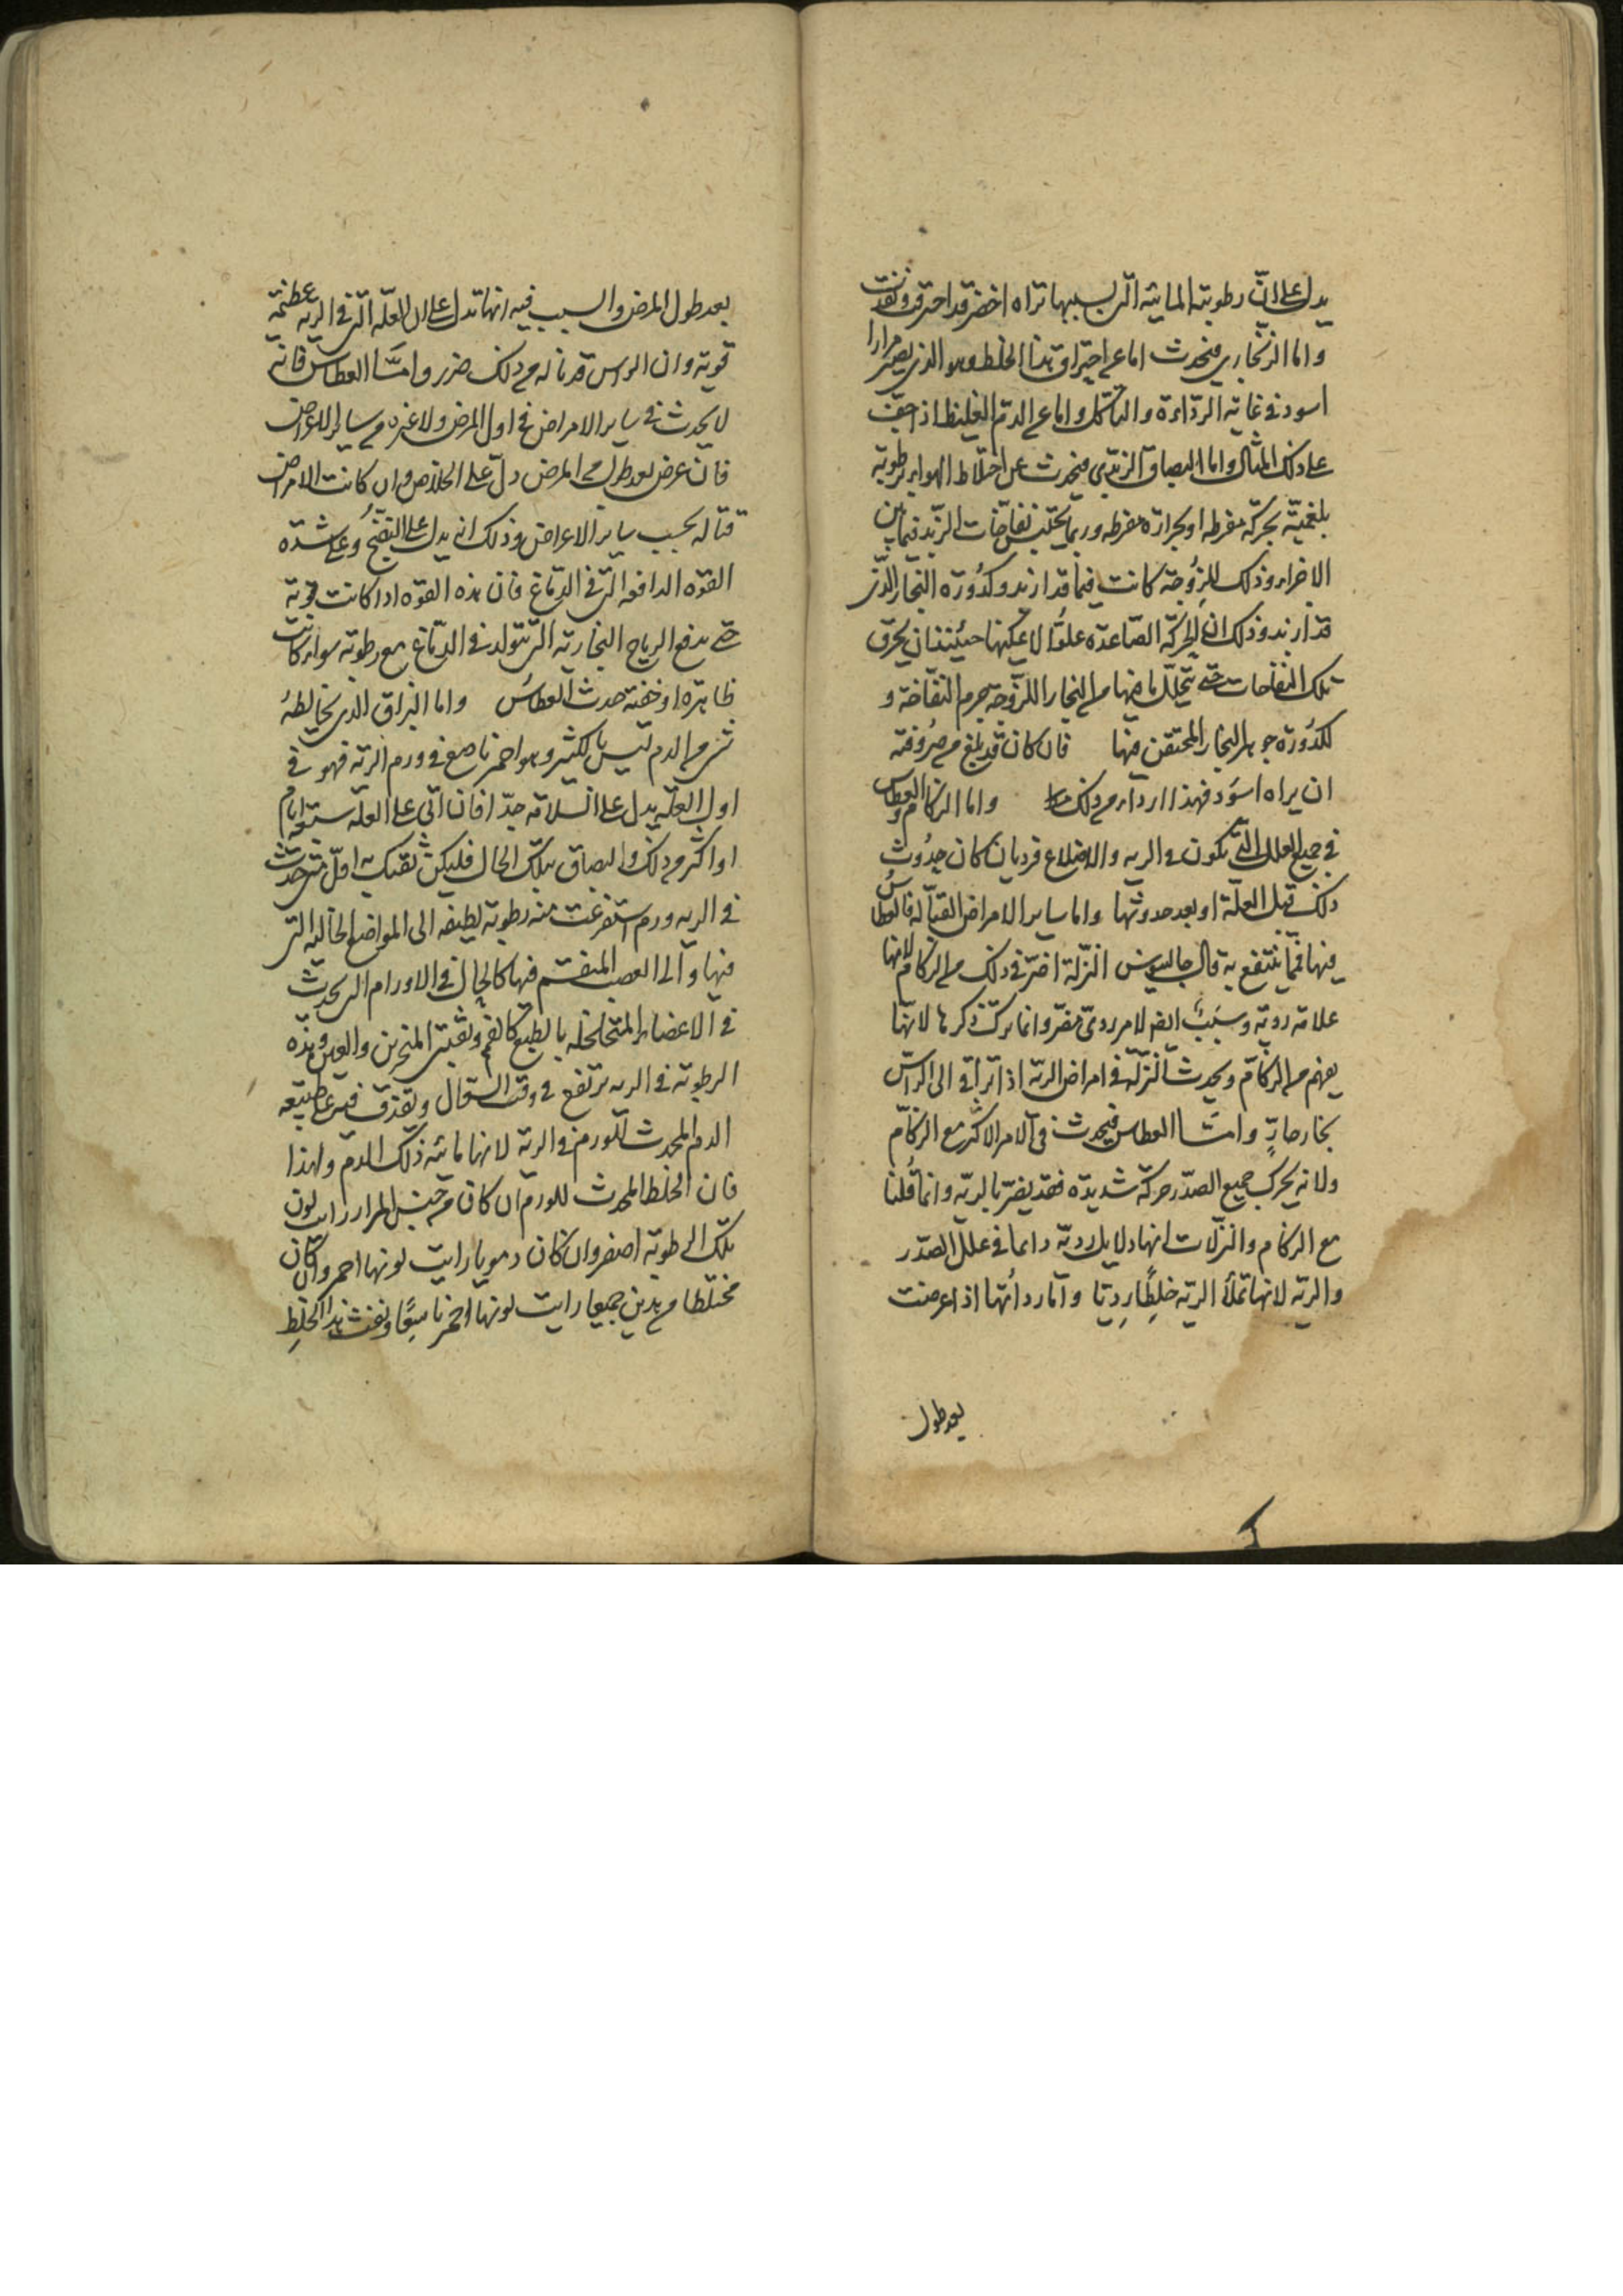 يدل على ان رطوبته المائية التي بسببها تراه اخضر قد احترقت ونفدت
واما الزنجاري فيحدث اما عن احتراق هذا الخلط وهو الذي يصير مرارا
اسود في غاية الرداءة والتآكل واما عن الدم الغليظ اذ احترق
على ذلك المثال واما البصاق الزبدي فيحدث عن اختلاط الهواء برطوبة
بلغمية بحركة مفرطة او بحرارة مفرطة وربما يحتبس نفاخات الزبد فيما بين
الاجزاء وذلك للزوجة كانت فيما قد ازبد وكدورة البخار الذي
قد ازبد وذلك ان الحركة الصاعدة علوا لا يمكنها حينئذ ان يخرق
تلك النفاخات حتى يتحلل ما فيها من البخار اللزوجة جرم النفاخة و
لكدورة جوهر البخار المحتقن فيها فان كان قد بلغ من صروفته
ان يراه اسود فهذا اردأ من ذلك واما الزكام والعطاس
في جميع العلل التي تكون في الرية والاضلاع فرديان كان حدوث
ذلك قبل العلة او بعد حدوثها واما ساير الامراض القتالة فالعطاس
فيها مما ينتفع به قال جالينوس النزلة اضر في ذلك من الزكام لانها
علامة ردية وسبب ايضا لامر ردي مضر وانما ترك ذكرها لانها
يفهم من الزكام ويحدث النزلة في امراض الرية اذا تراقى الى الراس
بخار حار واما العطاس فيحدث في الامر الاكثر مع الزكام
ولانه يحرك جميع الصدر حركة شديدة فقد يضر بالرية وانما قلنا
مع الزكام والنزلات انها دلايل ردية دائما في علل الصدر
والرية لانها تملأ الرية خلطا رديا واما رداتها اذا عرضت
بعد طول
بعد طول المرض والسبب فيه انها تدل على ان العلة التي في الرية عظيمة
قوية وان الراس قد ناله من ذلك ضرر واما العطاس فانه
لا يحدث في ساير الامراض في اول المرض ولا غيره من ساير الاعراض
فان عرض بعد طول من المرض دل على الخلاص وان كانت الامراض
قتالة بحسب ساير الاعراض وذلك انه يدل على النضج وعلى شدة
القوة الدافعة التي في الدماغ فان هذه القوة اذا كانت قوية
حتى يدفع الرياح البخارية التي تتولد في الدماغ مع رطوبة سواء كانت
ظاهرة او خفية حدث العطاس واما البزاق الذي يخالطه
شي من الدم ليس بالكثير وهو احمر ناصع في ورم الرية فهو في
اول العلة يدل على السلامة جدا فان اتى على العلة سبعة ايام
او اكثر من ذلك والبصاق بتلك الحال فليكن ثقتك به اقل متى حدث
في الرية ورم استفرغت منه رطوبة لطيفة الى المواضع الخالية التي
فيها والى العصب المنقسم فيها كالحال في الاورام التي يحدث
في الاعضاء المتخلخلة بالطبع كالفم وثقبتي المنخرين والعين وهذه
الرطوبة في الرية ترتفع في وقت السعال ويقذف فيه على طبيعة
الدم المحدث للورم في الرية لانها مائية ذلك الدم ولهذا
فان الخلط المحدث للورم ان كان من جنس المرار رايت لون
تلك الرطوبة اصفر وان كان دمويا رايت لونها احمر وان كان
مختلطا من هذين جميعا رايت لونها احمر ناصعا ونفث هذا الخلط